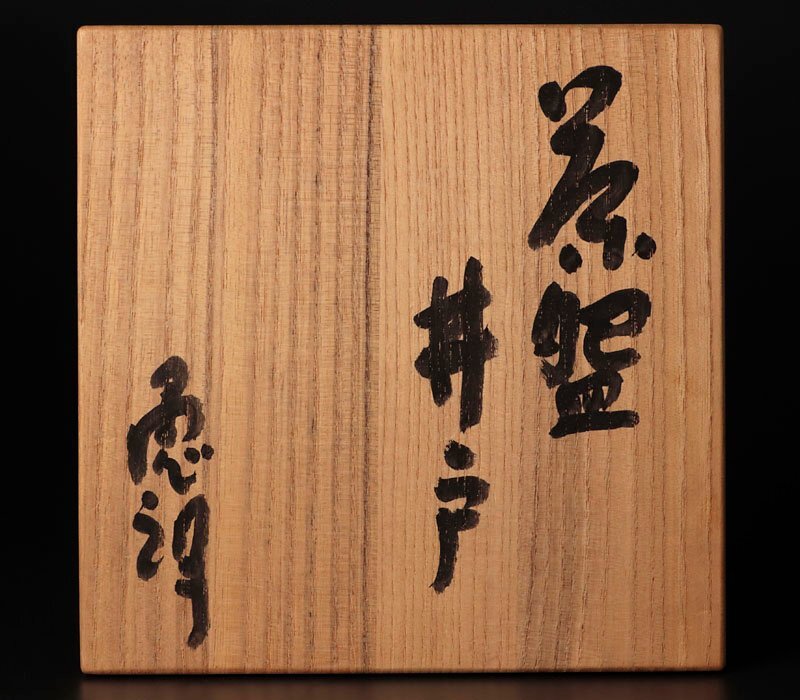 茶盌
井戸